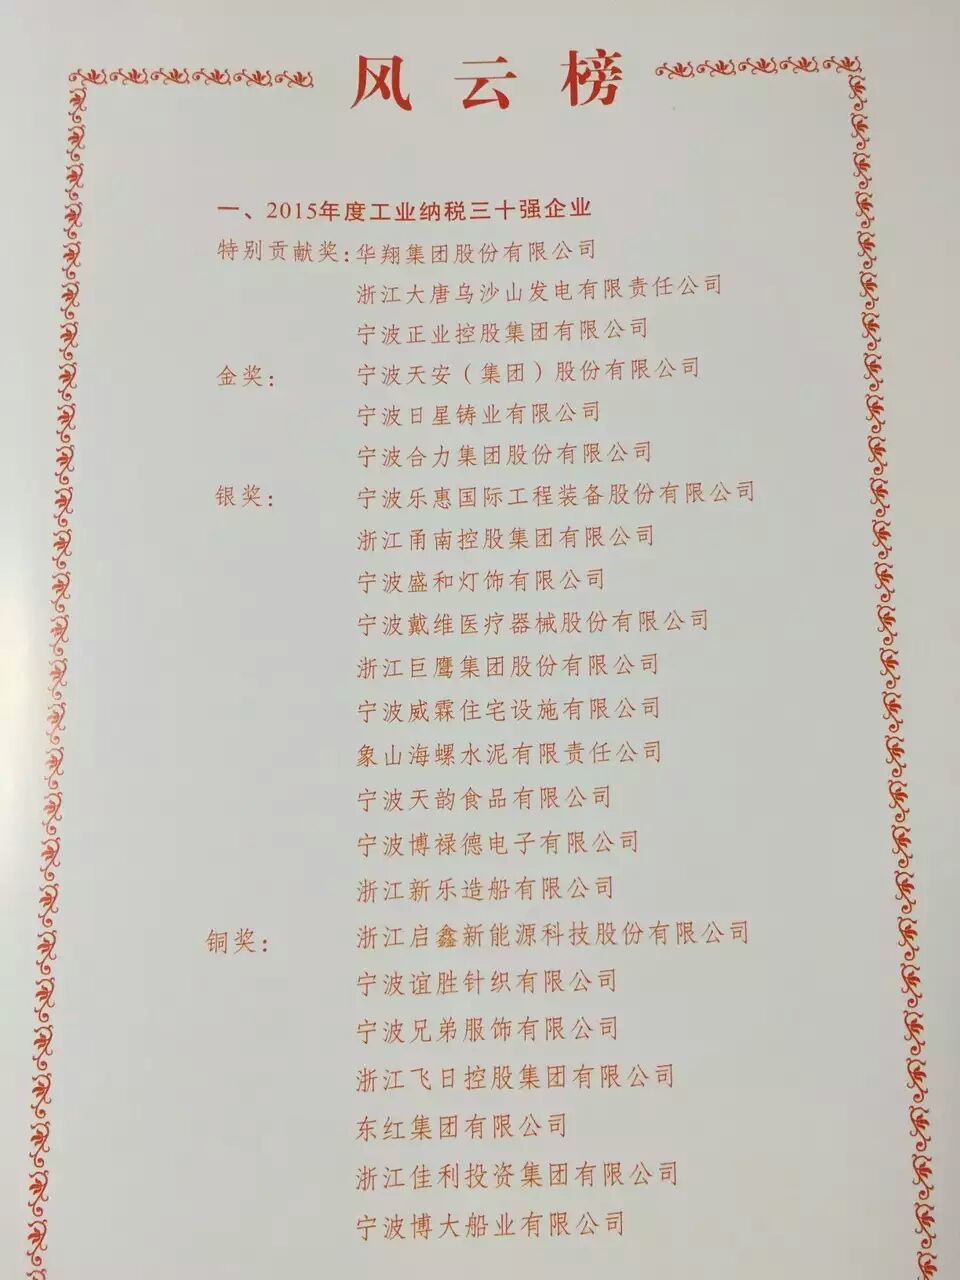 风云榜
一、2015年度工业纳税三十强企业
特别贡献奖：华翔集团股份有限公司
浙江大唐乌沙山发电有限责任公司
宁波正业控股集团有限公司
金奖：宁波天安（集团）股份有限公司
宁波日星铸业有限公司
宁波合力集团股份有限公司
银奖：宁波乐惠国际工程装备股份有限公司
浙江甬南控股集团有限公司
宁波盛和灯饰有限公司
宁波戴维医疗器械股份有限公司
浙江巨鹰集团股份有限公司
宁波威霖住宅设施有限公司
象山海螺水泥有限责任公司
宁波天韵食品有限公司
宁波博禄德电子有限公司
浙江新乐造船有限公司
铜奖：浙江启鑫新能源科技股份有限公司
宁波谊胜针织有限公司
宁波兄弟服饰有限公司
浙江飞日控股集团有限公司
东红集团有限公司
浙江佳利投资集团有限公司
宁波博大船业有限公司